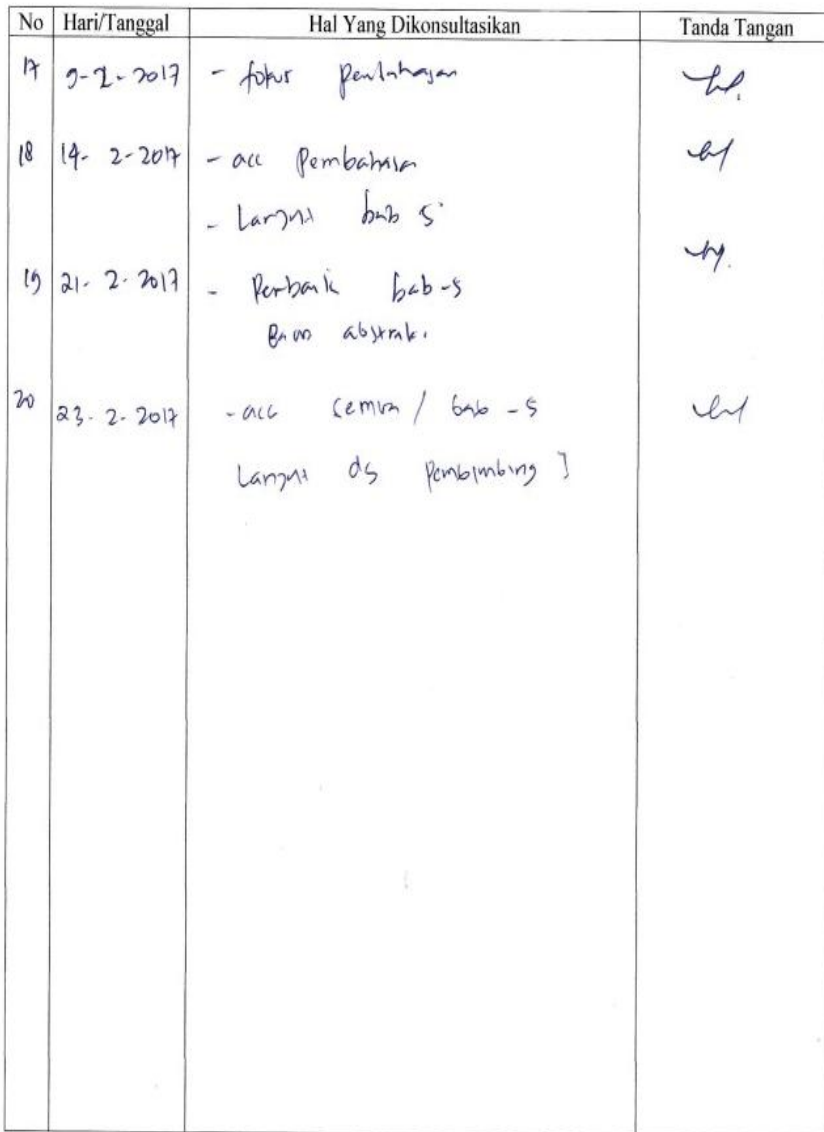 No Hari/Tanggal Hal Yang Dikonsultasikan Tanda Tangan
17 9-2-2017 - fokus pembahasan
18 14-2-2017 - acc Pembahasan
- Lanjut bab 5
19 21-2-2017 - Perbaiki bab-5
abstrak.
20 23-2-2017 - acc semua / bab-5
Lanjut ds Pembimbing I